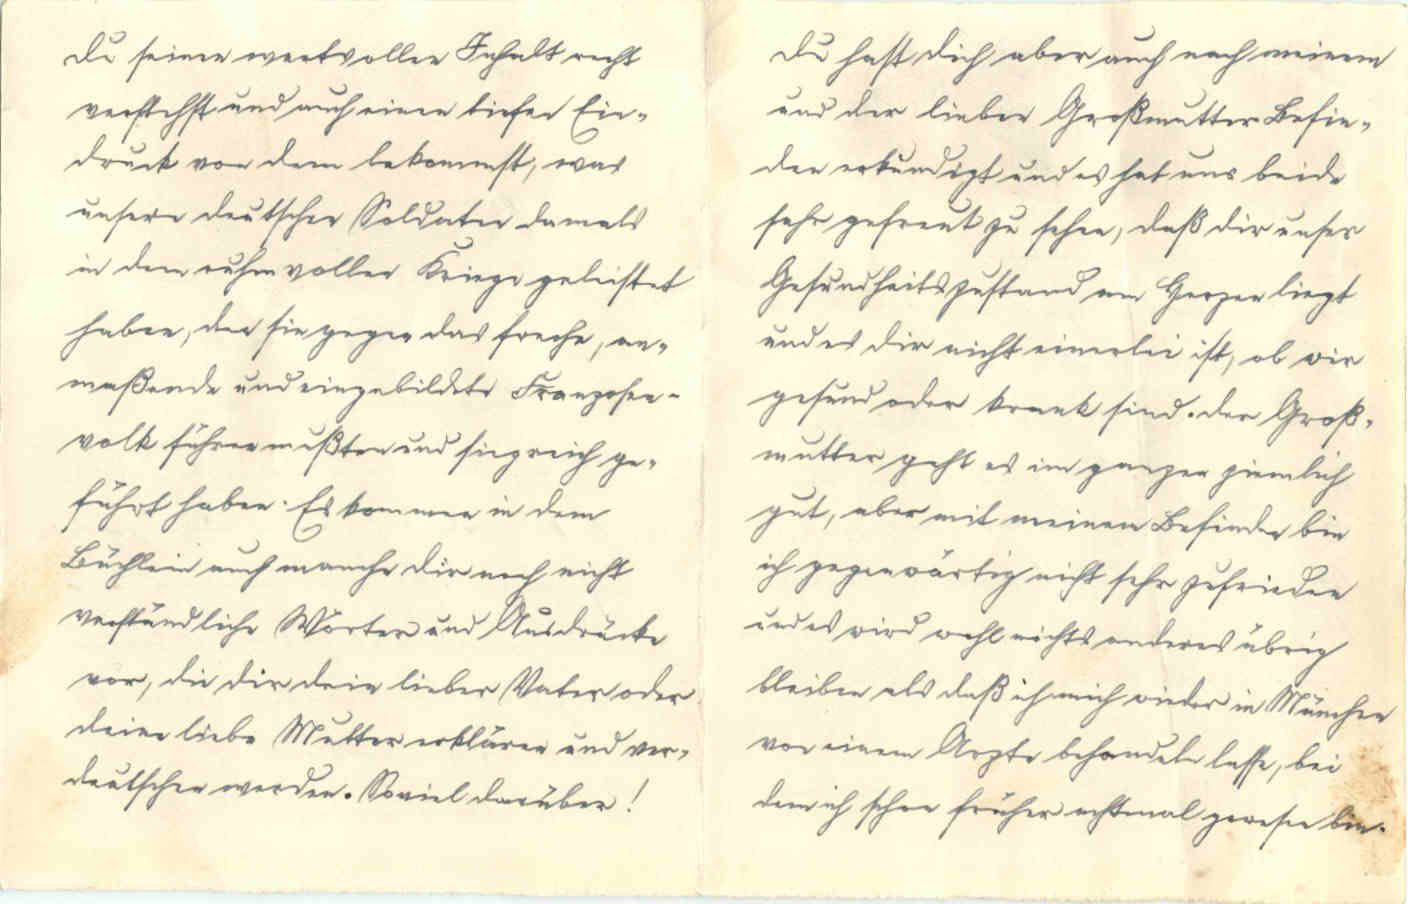 du seinen wertvollen Inhalt recht
verstehst und auch einen tiefen Ein-
druck von dem bekommst, was
unsere deutschen Soldaten damals
in dem ruhmvollen Kriege geleistet
haben, den sie gegen das freche, an-
maßende und eingebildete Franzosen-
volk führen mußten und siegreich ge-
führt haben. Es kommen in dem
Büchlein auch manche dir noch nicht
verständliche Wörter und Ausdrücke
vor, die dir dein lieber Vater oder
deine liebe Mutter erklären und ver-
deutschen werden. Soviel darüber!
Du hast dich aber auch nach meinem
und der lieben Großmutter Befin-
den erkundigt und es hat uns beide
sehr gefreut zu sehen, daß dir unser
Gesundheitszustand am Herzen liegt
und es dir nicht einerlei ist, ob wir
gesund oder krank sind. Der Groß-
mutter geht es im ganzen ziemlich
gut, aber mit meinem Befinden bin
ich gegenwärtig nicht sehr zufrieden
und es wird wohl nichts anderes übrig
bleiben als daß ich mich wieder in München
von einem Arzte behandeln lasse, bei
dem ich schon früher achtmal gewesen bin.